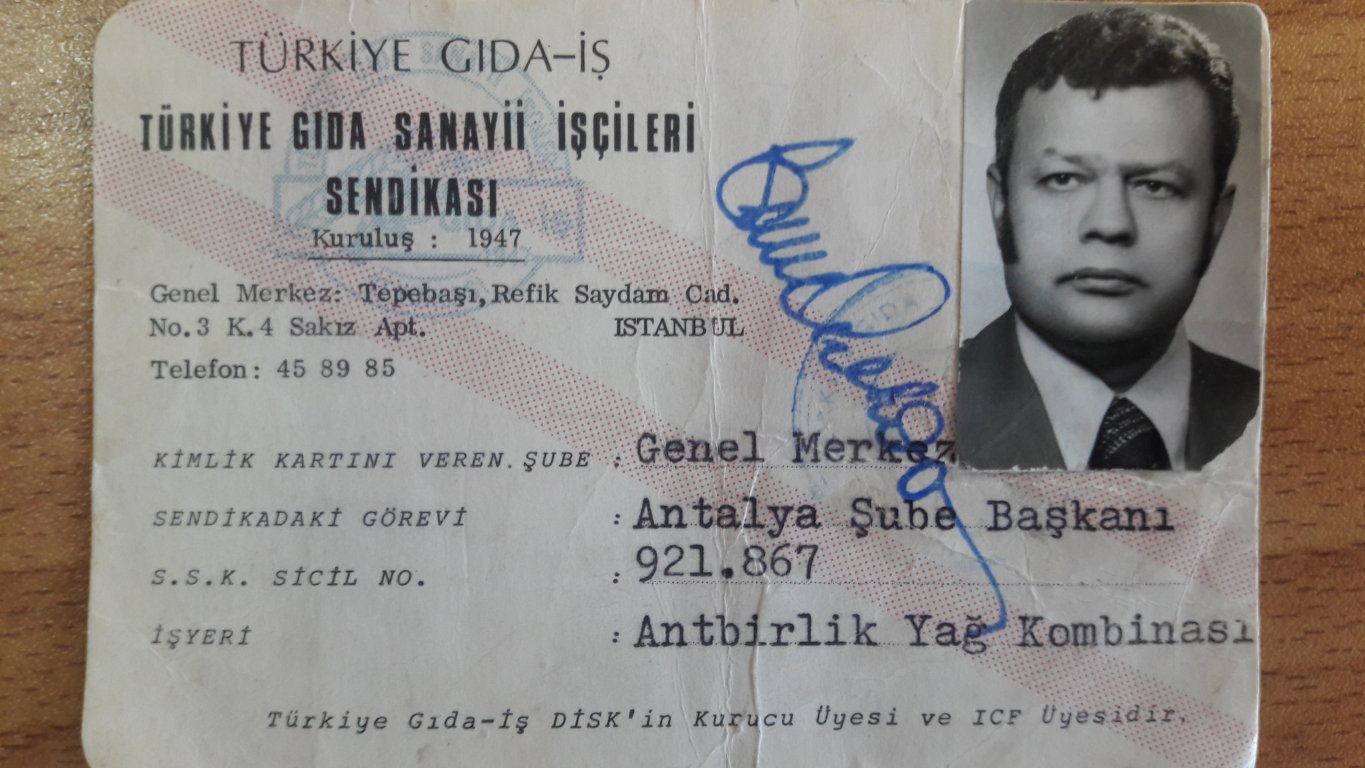 TÜRKİYE GIDA-İŞ
TÜRKİYE GIDA SANAYİİ İŞÇİLERİ
SENDİKASI
Kuruluş : 1947
Genel Merkez: Tepebaşı, Refik Saydam Cad.
No. 3 K. 4 Sakız Apt. ISTANBUL
Telefon: 45 89 85
KİMLİK KARTINI VEREN. ŞUBE : Genel Merkez
SENDİKADAKİ GÖREVİ : Antalya Şube Başkanı
S.S.K. SİCİL NO. : 921.867
İŞYERİ : Antbirlik Yağ Kombinası
Türkiye Gıda-İş DİSK'in Kurucu Üyesi ve ICF Üyesidir.